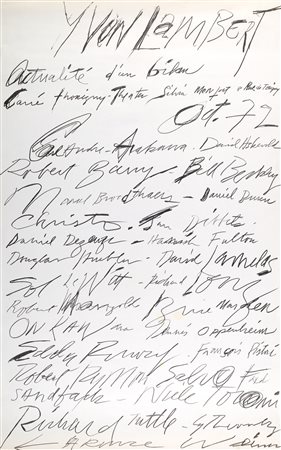 YVON LAMBERT
Actualité d'un bilan
Carré Thorigny - Théâtre Silvia Monfort
Oct. 72
Carl Andre - Arakawa - David Askevold
Robert Barry - Bill Beckley
Marcel Broodthaers - Daniel Buren
Christo. Jan Dibbets
Daniel Dezeuze - Hamish Fulton
Douglas Huebler - David Lamelas
Sol LeWitt - Richard Long
Robert Mangold Brice Marden
ON KAWARA Dennis Oppenheim
François
Robert Ryman Salvo Fred
SANDBACK - Niele Toroni
Richard Tuttle - Cy Twombly